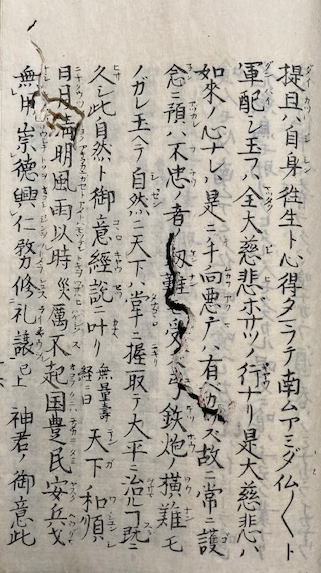 提且ハ自身往生ト心得タマヲテ南ムアミダ仏〱ト
軍配シ玉フハ全大慈悲ボサツノ行ナリ是大慈悲ハ
如來ノ心ナレハ是ニ手向悪戸ハ有ベカラス故ニ常ニ護
念ニ預ハ不忠ノ者ノ災難ヲ受ベキ鉄炮ノ横難モ
ノガレ玉ヘテ自然ニ天下ハ掌ニ握取テ大平ニ治ルヿ既ニ
久シ此自然ト御意經説ニ叶リ 無量壽經ニ曰 天下和順
日月清明風雨以時災厲不起国豊民安兵戈
無用崇德興仁務修礼譲已上 神君ノ御意此